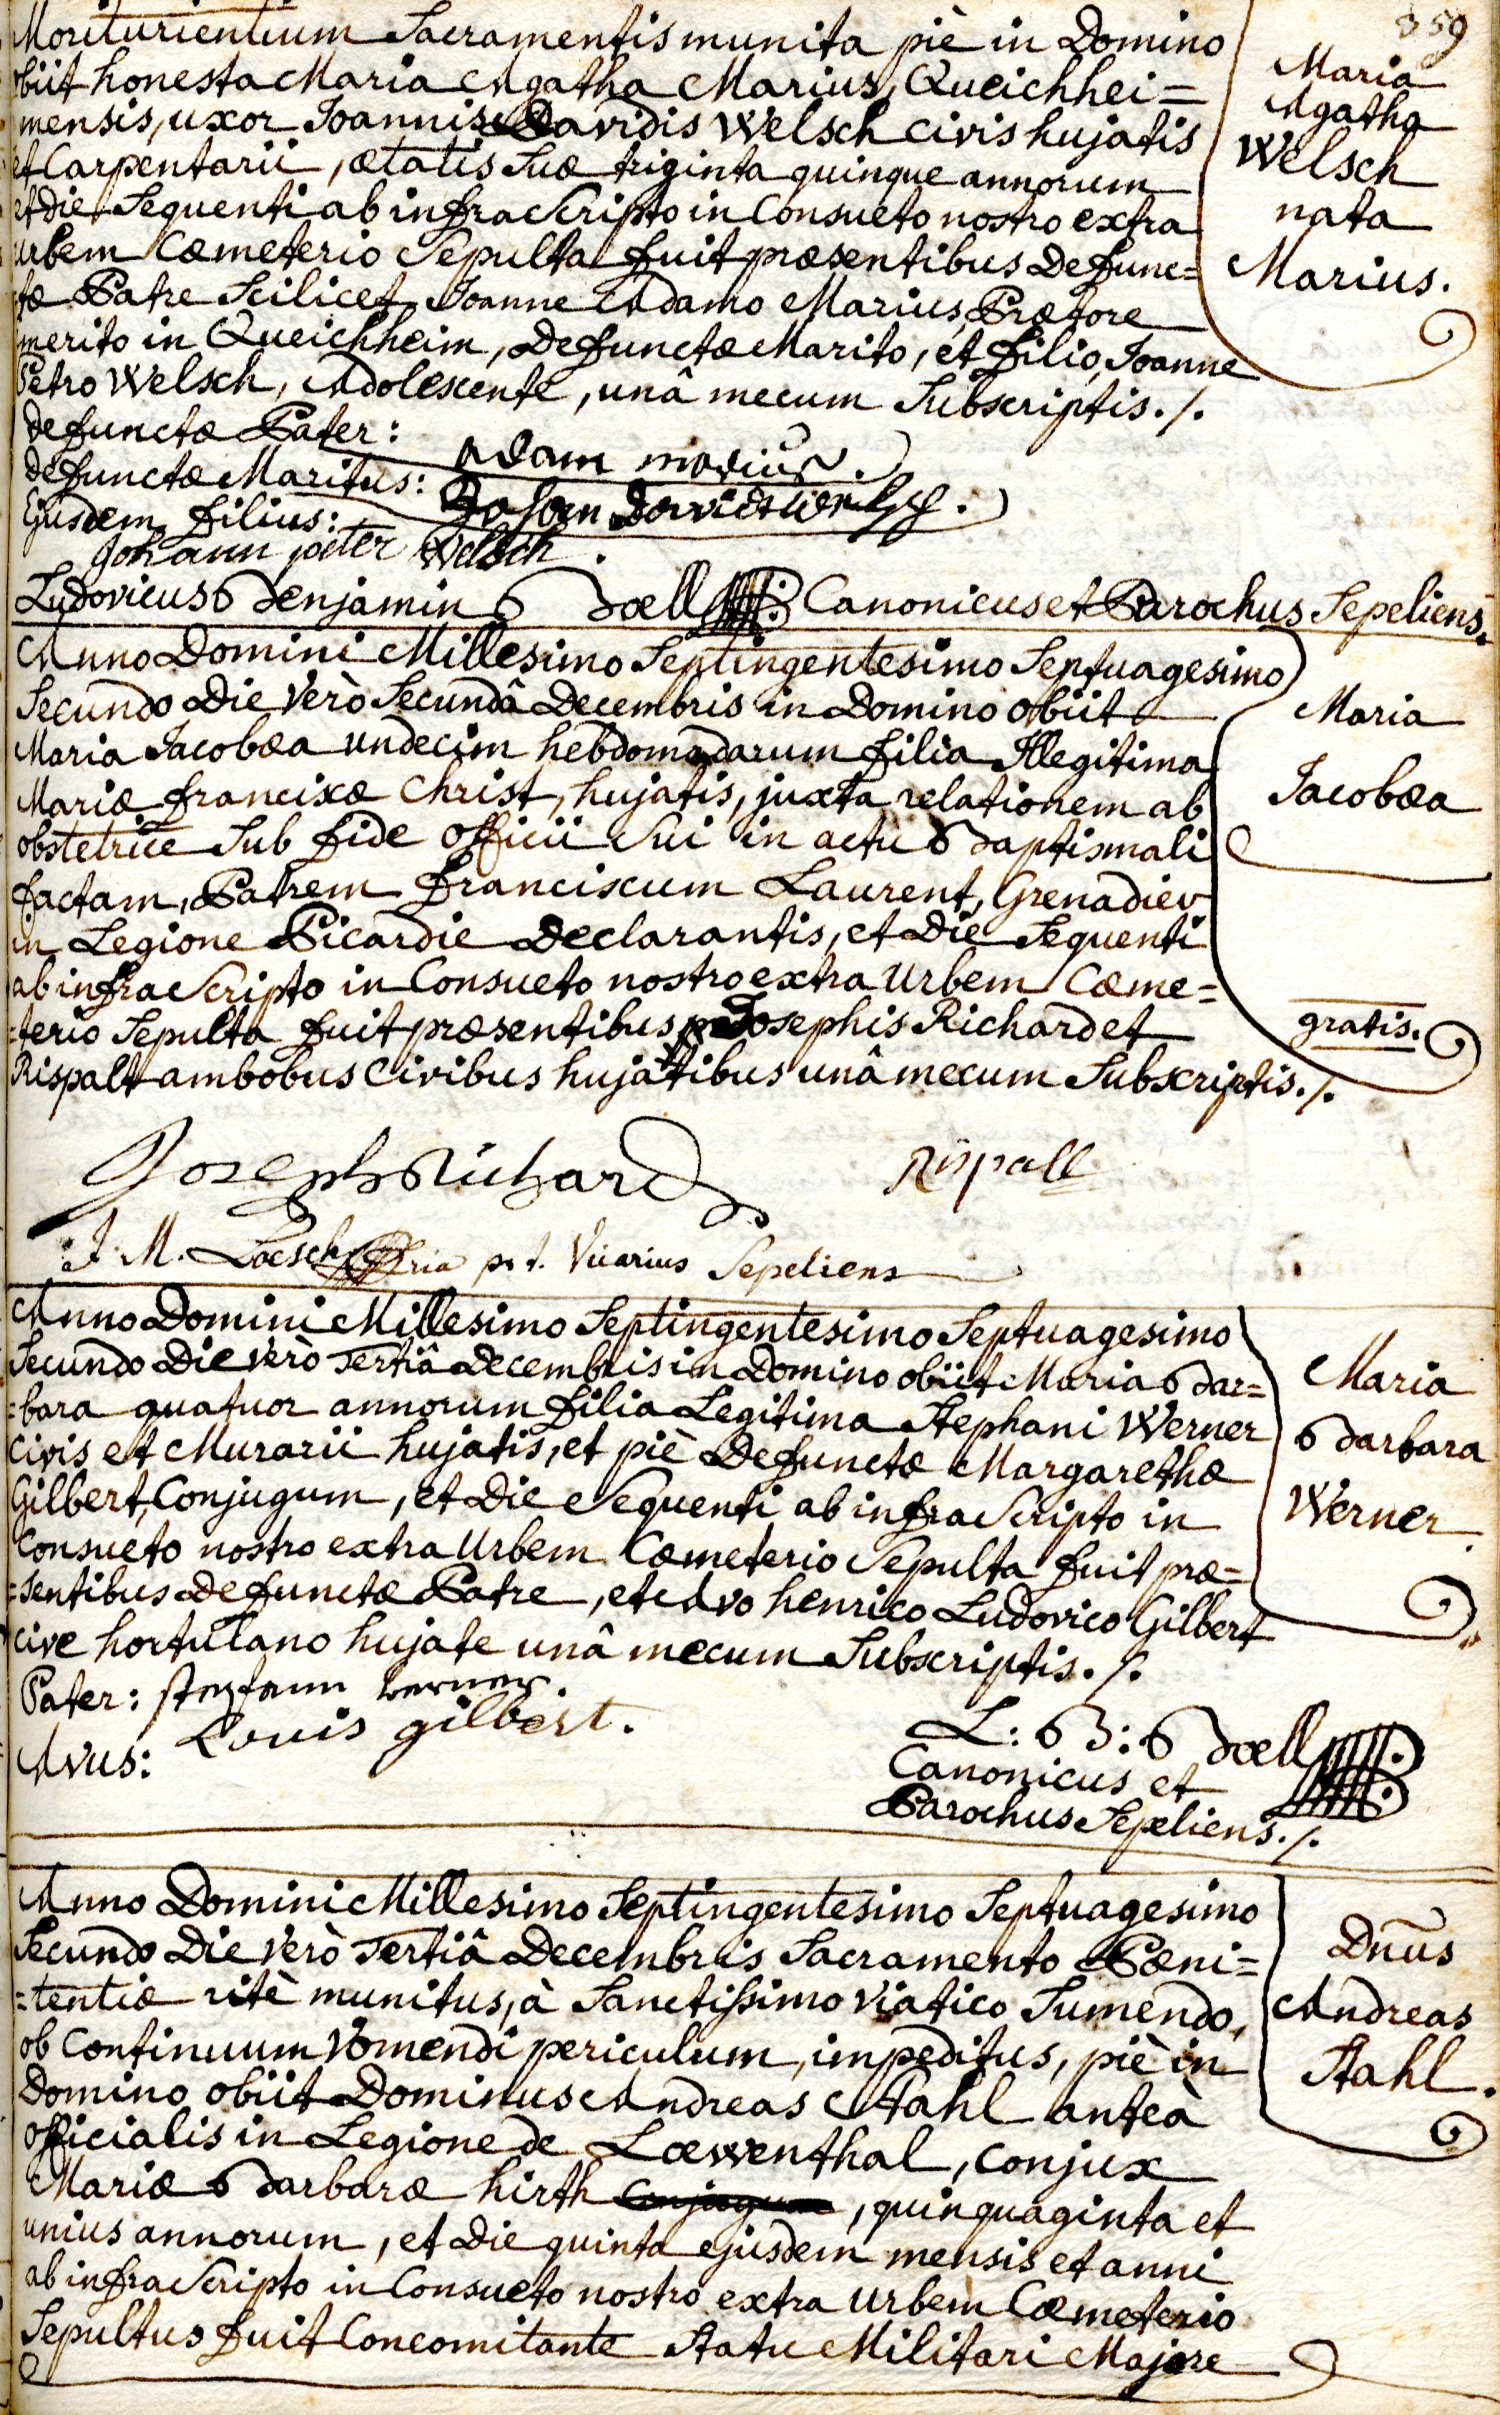 359
Moriturientium Sacramentis munita piè in Domino
obiit honesta Maria Agatha Marius, Queichhei=
mensis, uxor Joannis Davidis Welsch civis hujatis
et Carpentarii, ætatis suæ triginta quinque annorum
et die sequenti ab infra scripto in Consueto nostro extra
urbem Cœmeterio Sepulta fuit præsentibus defunc=
tæ Patre scilicet Joanne Adamo Marius, Prætore
merito in Queichheim, defunctæ Marito, et filio, Joanne
Petro Welsch, Adolescente, unâ mecum Subscriptis ./.
Maria
Agatha
Welsch
nata
Marius.
defunctæ Pater: Adam marius.
defunctæ Maritus: Johan David Welsch.
Ejusdem filius:
Johann peter Welsch.
Ludovicus Benjamin Boell Canonicus et Parochus Sepeliens.
Anno Domini Millesimo Septingentesimo Septuagesimo
Secundo Die Verò Secundâ Decembris in Domino obiit
Maria Jacobæa undecim hebdomadarum filia Illegitima
Mariæ franciscæ Christ, hujatis, juxta relationem ab
obstetrice sub fide officii sui in actu Baptismali
factam, Patrem franciscum Laurent, Grenadier
in Legione Picardie Declarantis, et Die Sequenti
ab infra scripto in Consueto nostro extra Urbem Cœme=
=terio Sepulta fuit præsentibus Josephis Richard et
Rispalt ambobus civibus hujatibus unâ mecum Subscriptis ./.
Maria
Jacobæa
gratis.
Joseph Richard
Rispall
J. M. Loesch p. t. Vicarius Sepeliens
Anno Domini Millesimo Septingentesimo Septuagesimo
Secundo Die verò Tertiâ Decembris in Domino obiit Maria Bar=
=bara quatuor annorum filia Legitima Stephani Werner
civis et Murarii hujatis, et piè Defunctæ Margarethæ
Gilbert, Conjugum, et Die Sequenti ab infra scripto in
Consueto nostro extra Urbem Cœmeterio Sepulta fuit præ=
=sentibus Defunctæ Patre, et Avo henrico Ludovico Gilbert
cive hortulano hujate unâ mecum Subscriptis ./.
Maria
Barbara
Werner
Pater: stephann werner.
Avus: Louis gilbert.
L: B: Boell
Canonicus et
Parochus Sepeliens ./.
Anno Domini Millesimo Septingentesimo Septuagesimo
Secundo Die verò Tertiâ Decembris Sacramento Pœni=
=tentiæ ritè munitus, à Sanctissimo Viatico Sumendo,
ob Continuum Vomendi periculum, impeditus, piè in
Domino obiit Dominus Andreas Stahl anteà
officialis in Legione de Lœwenthal, conjux
Mariæ Barbaræ hirth Conjugum, quinquaginta et
unius annorum, et Die quinta ejusdem mensis et anni
ab infra scripto in Consueto nostro extra Urbem Cœmeterio
Sepultus fuit Concomitante Statu Militari Majore
Dnūs
Andreas
Stahl.